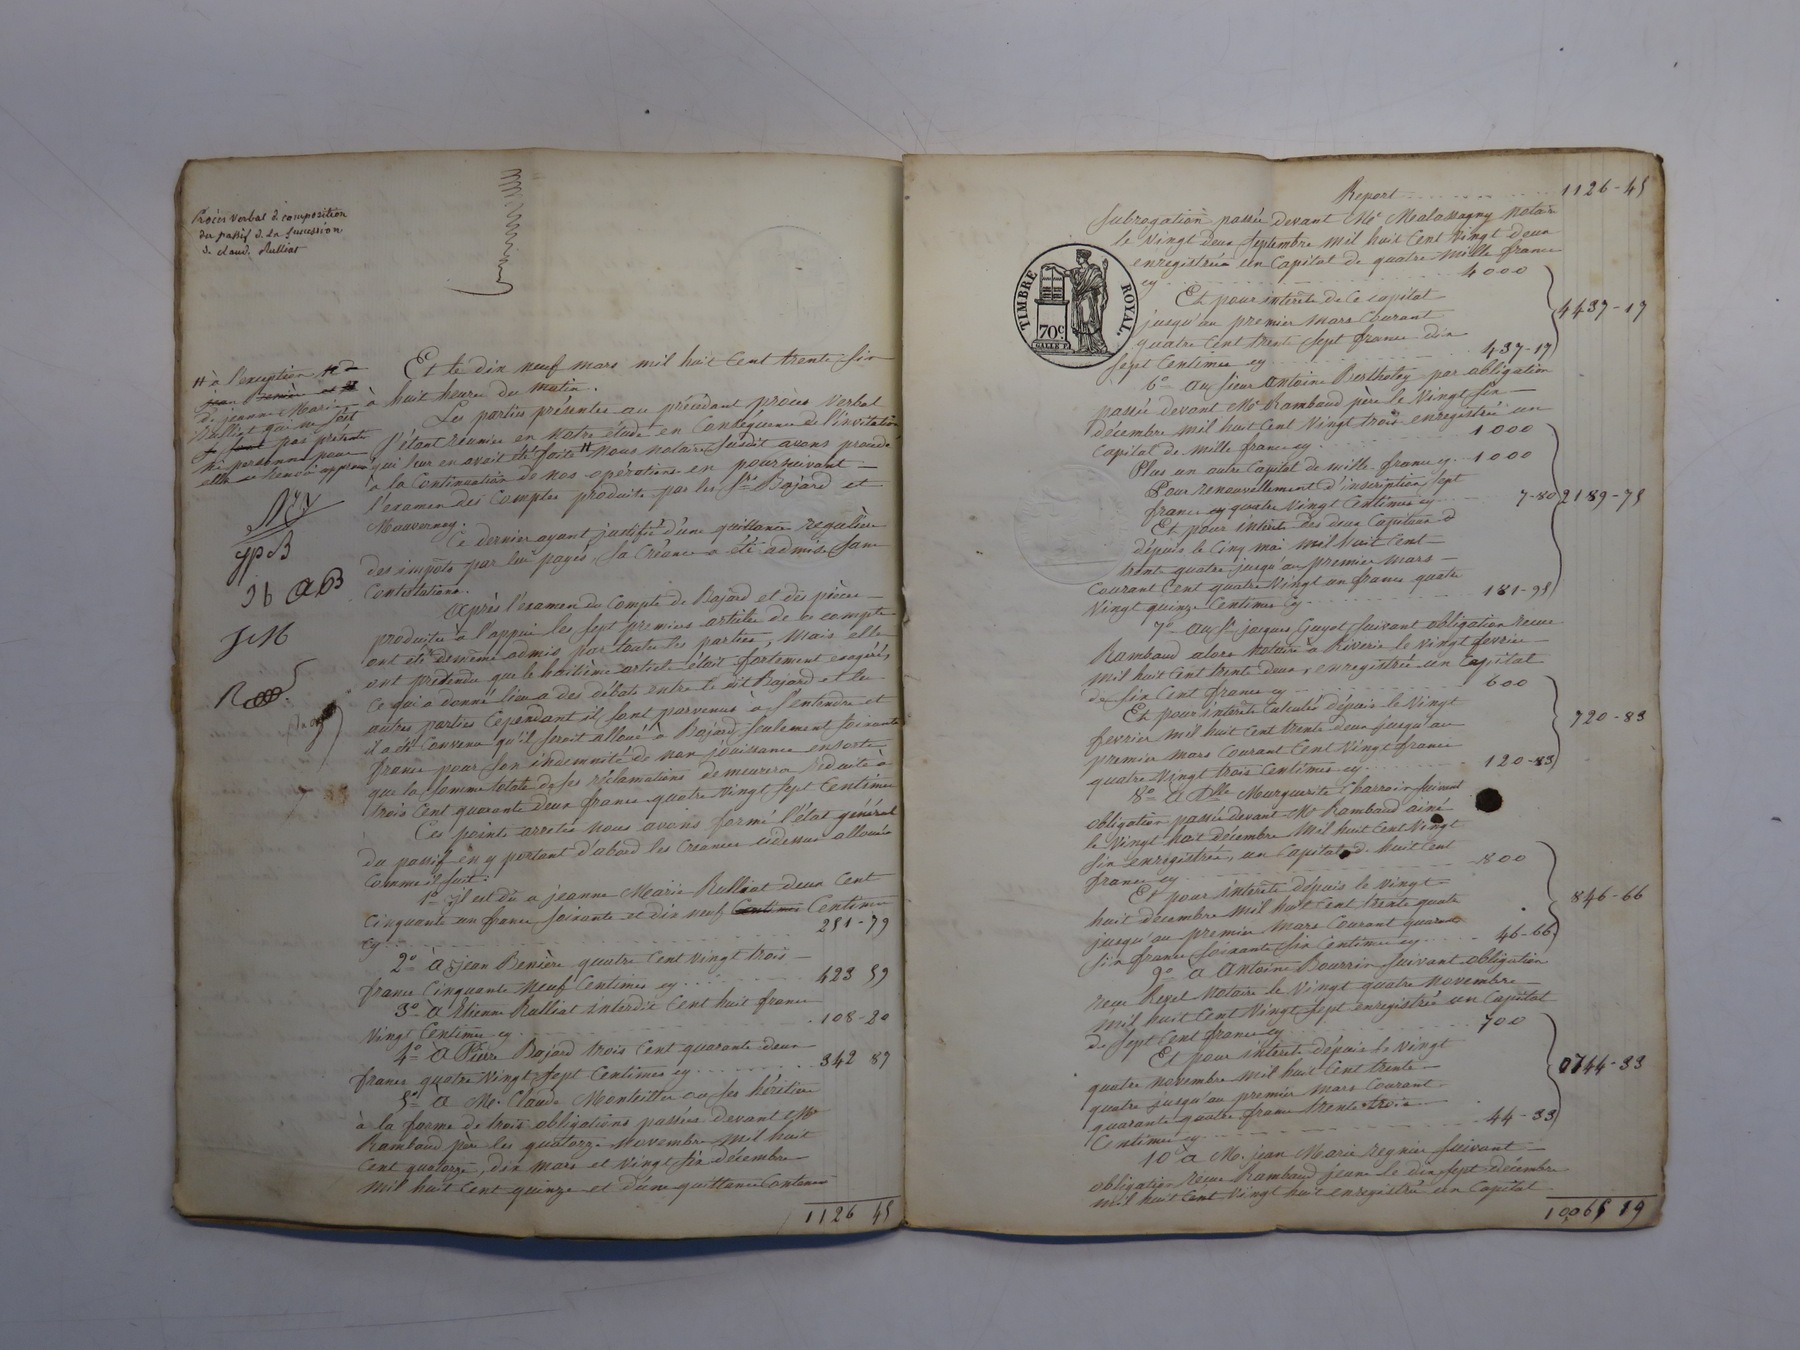 Procès verbal de composition
du passif de la succession
de Claude Rulliat
# à l'exception #
jean Benière et #
de jeanne Marie
Rulliat qui ne s'est
pas présenté
ni personne pour
elle
JPB
JB AB
JM
R
Et le dix neuf mars mil huit Cent trente Six
à huit heures du matin.
Les parties présentes au précédant procès verbal
s'étant réunies en notre étude en Conséquence de l'invitation
qui leur en avait été faite # Nous notaire susdit avons procédé
à la Continuation de nos opérations en poursuivant
l'examen des Comptes produits par les Srs Bajard et
Mauvernay.
Ce dernier ayant justifié d'une quittance régulière
des impots par lui payés, sa Créance a été admise sans
Contestations.
Après l'examen du Compte de Bajard et des pièces
produites à l'appui les sept premiers articles de ce compte
ont été demême admis par toutes les parties, Mais elles
ont prétendu que le huitième article était fortement exagéré,
Ce qui a donné lieu a des débats entre le dit Bajard et les
autres parties Cependant ils sont parvenus à s'entendre et
il a été Convenu qu'il seroit alloué à Bajard seulement soixante
francs pour son indemnité de non jouissance ensorte
que la somme totale de ses réclamations demeurera réduite à
trois Cent quarante deux francs quatre Vingt sept Centimes
Ces points arrêtés nous avons formé l'état général
du passif en y portant d'abord les Créances cidessus allouées
Comme il suit:
1o il est dû a jeanne Marie Rulliat deux Cent
Cinquante un francs soixante et dix neuf Centimes Centimes
cy 251-79
2o À jean Benière quatre Cent Vingt trois
francs Cinquante Neuf Centimes cy 423 59
3o à Etienne Rulliat interdit Cent huit francs
Vingt Centimes cy 108-20
4o À Pierre Bajard trois Cent quarante deux
francs quatre Vingt Sept Centimes cy 342 87
5o à Mr Claude Monteiller ou ses héritiers
à la forme de trois obligations passées devant Me
Rambaud père les quatorze Novembre mil huit
Cent quatorze, dix mars et Vingt Six décembre
Mil huit Cent quinze et d'une quittance Contenant
1126 45
Report 1126-45
Subrogation passée devant Me Malassagny Notaire
le Vingt deux Septembre Mil huit Cent Vingt deux
enregistrée un Capital de quatre Mille francs
cy 4000
Et pour intérêts de Ce capital
jusqu'au premier mars Courant
quatre Cent trent Sept francs dix
Sept Centimes cy 437-17
4437-17
TIMBRE ROYAL.
70c
6o Au Sieur Antoine Berthotey par obligation
passée devant Me Rambaud père le Vingt Six
décembre Mil huit Cent Vingt trois enregistrée un
Capital de mille francs cy 1000
Plus un autre Capital de mille francs cy 1000
Pour renouvellement d'inscription Sept
francs cy quatre Vingt Centimes cy 7-80
2189-75
Et pour intérêts des deux Capitaux
dépuis le Cinq mai Mil huit Cent
trente quatre jusqu'au premier mars
Courant Cent quatre Vingt un francs quatre
Vingt quinze Centimes Cy 181-95
7o Au Sr jacques Guyot suivant obligation recue
Rambaud alors Notaire à Riverie le Vingt fevrier
Mil huit Cent trente deux, enregistrée un Capital
de Six Cent francs cy 600
Et pour intérêts Calculés dépuis le Vingt
fevrier Mil huit Cent trente deux jusqu'au
premier mars Courant Cent Vingt francs
quatre Vingt trois Centimes cy 120-83
720-83
8o à Dlle Marguerite Charroin suivant
obligation passée devant Me Rambaud ainé
le Vingt huit décembre Mil huit Cent Vingt
Six enregistrée, un Capital de huit Cent
francs cy 800
Et pour intérêts dépuis le Vingt
huit décembre Mil huit Cent trente quatre
jusqu'au premier Mars Courant quarante
Six francs soixante Six Centimes cy 46-66
846-66
9o à Antoine Bourrin suivant obligation
recue Revel Notaire le Vingt quatre Novembre
Mil huit Cent Vingt Sept enregistrée un Capital
de Sept Cent francs cy 700
Et pour intérêts dépuis le Vingt
quatre novembre Mil huit Cent trente
quatre jusqu'au premier Mars Courant
quarante quatre francs trente trois
Centimes cy 44-33
0744-33
10o à Mr jean Marie Regnier suivant
obligation recue Rambaud jeune le dix Sept décembre
Mil huit Cent Vingt huit enregistrée un Capital
10065 19